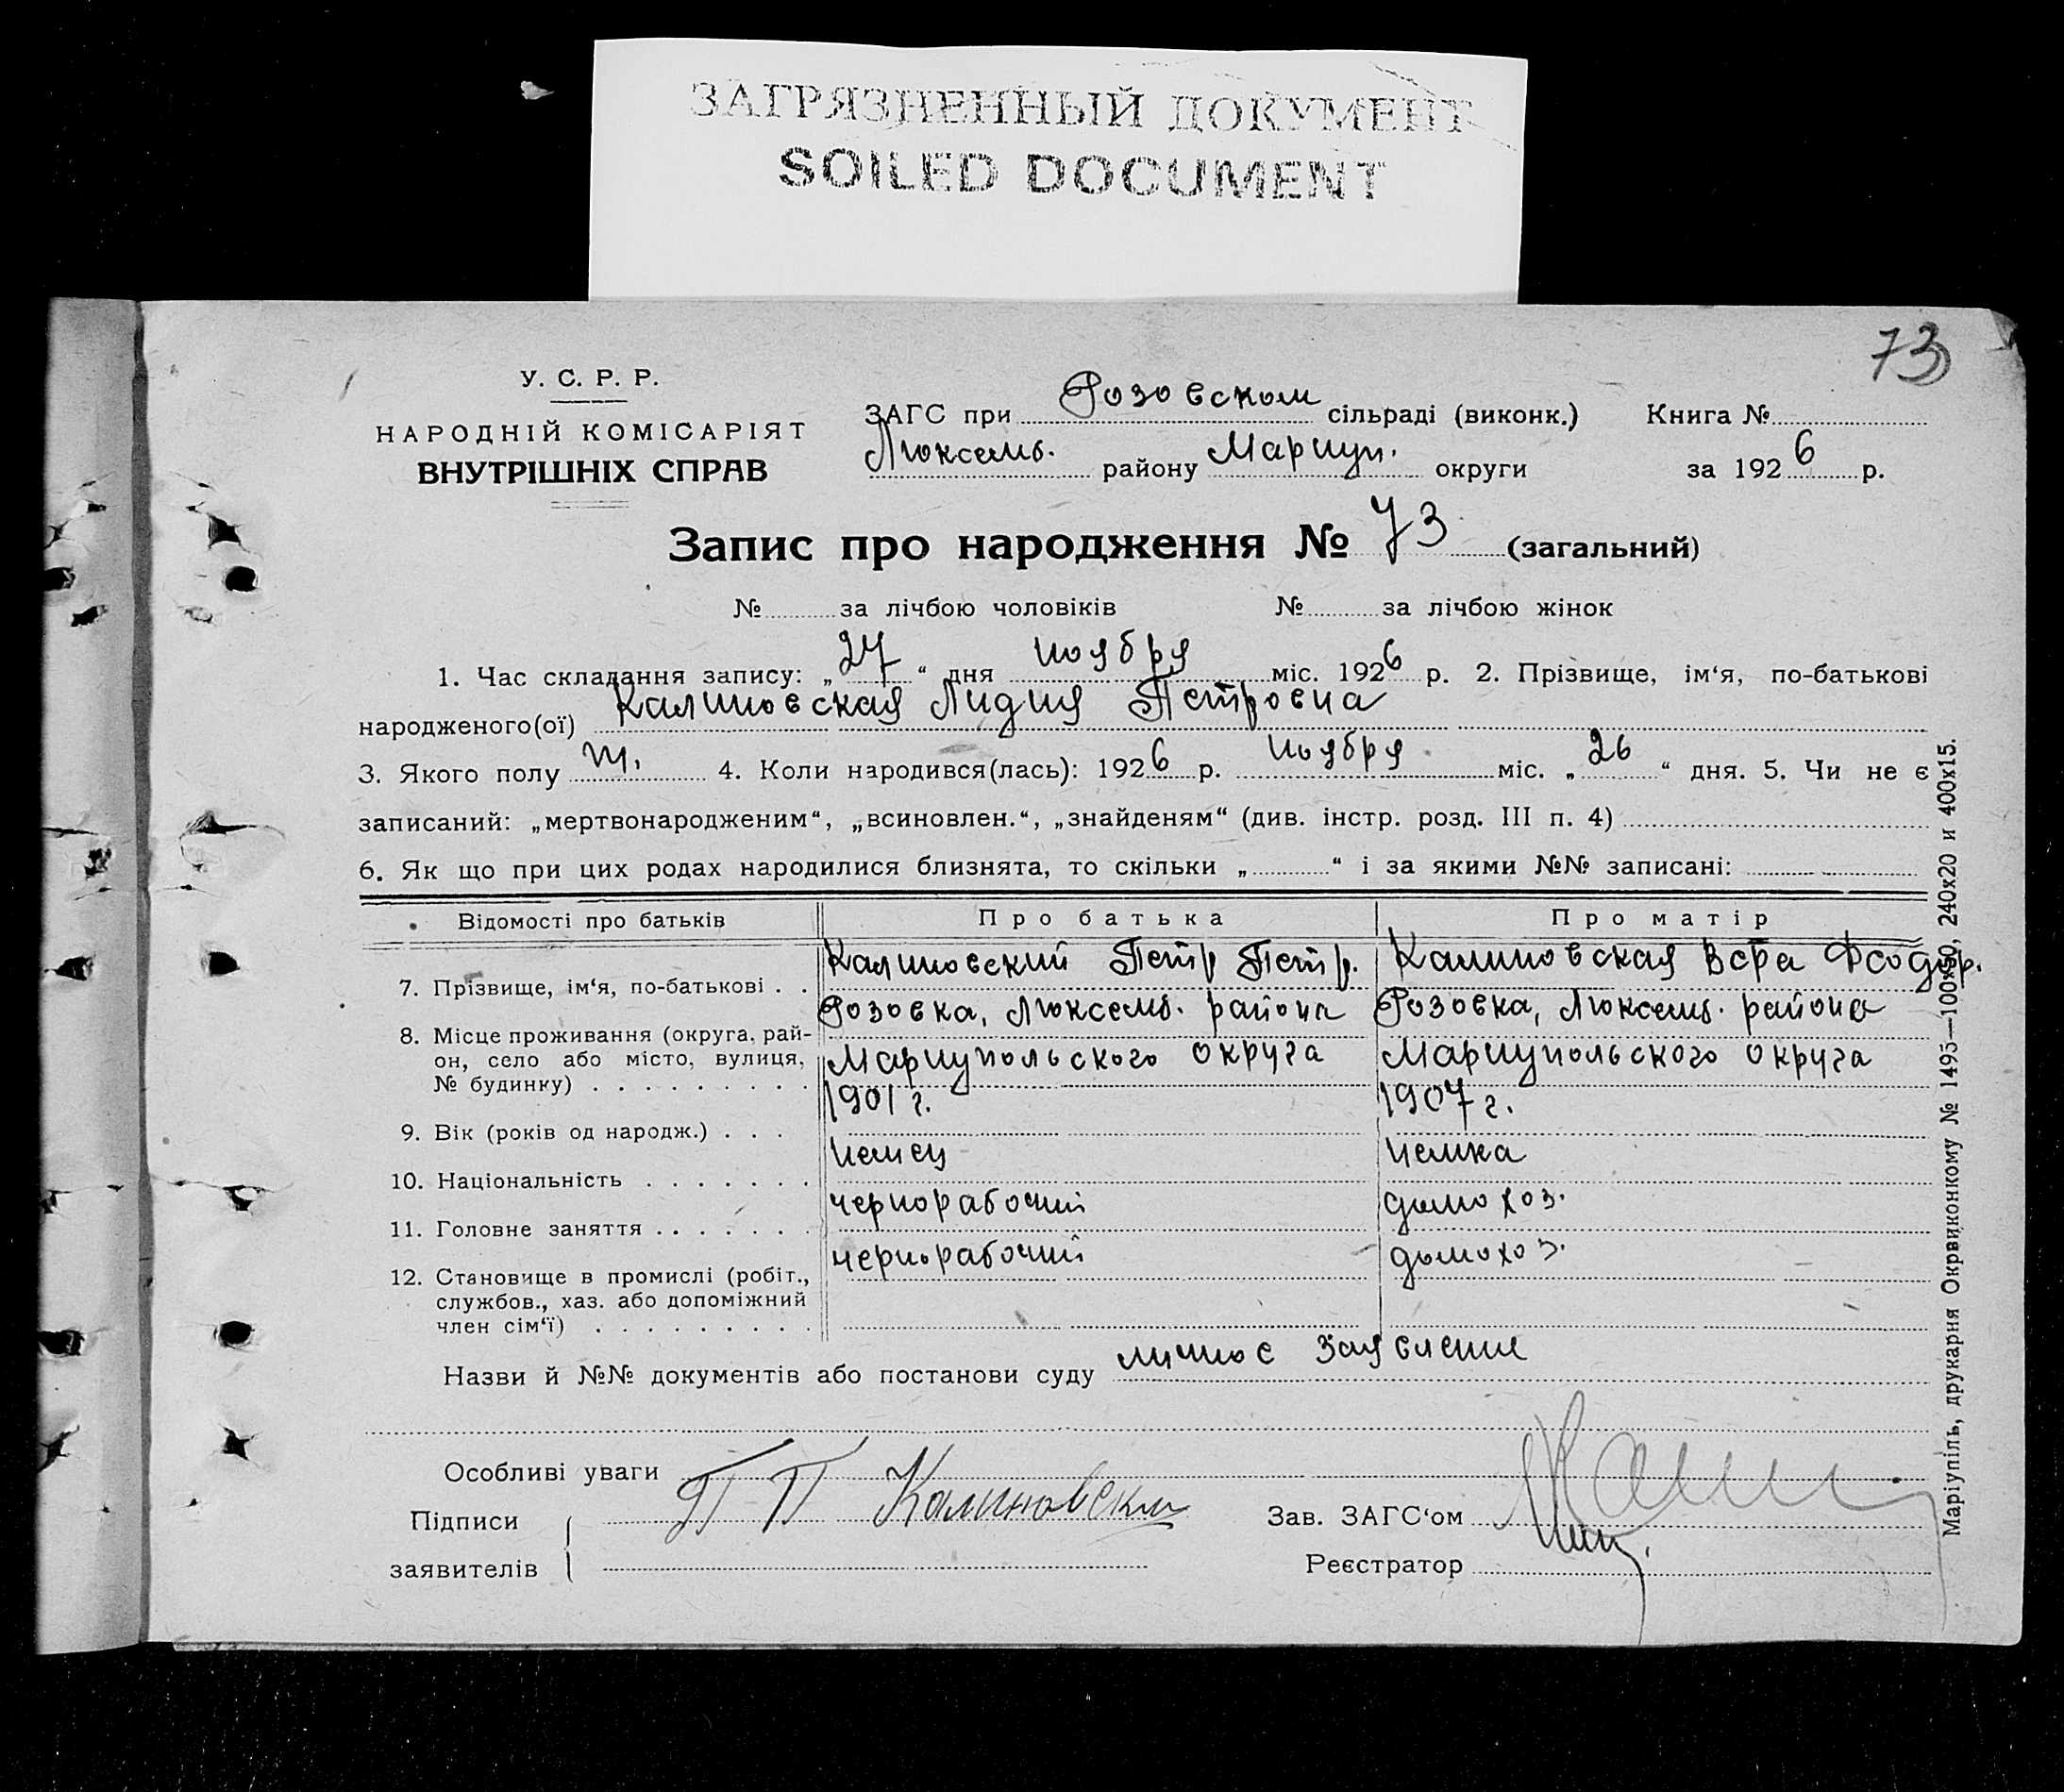 ЗАГРЯЗНЕННЫЙ ДОКУМЕНТ
SOILED DOCUMENT
73
У. С. Р. Р.
НАРОДНІЙ КОМІСАРІЯТ
ВНУТРІШНІХ СПРАВ
ЗАГС при Розовском сільраді (виконк.) Книга №
Люксемб. району Мариуп. округи за 1926 р.
Запис про народження № 73 (загальний)
№ за лічбою чоловіків № за лічбою жінок
1. Час складання запису: „27“ дня ноября міс. 1926 р. 2. Прізвище, ім‘я, по-батькові
народженого(ої) Калиновская Лидия Петровна
3. Якого полу ж. 4. Коли народився(лась): 1926 р. ноября міс. „26“ дня. 5. Чи не є
записаний: „мертвонародженим“, „всиновлен.“, „знайденям“ (див. інстр. розд. III п. 4)
6. Як що при цих родах народилися близнята, то скільки „ “ і за якими №№ записані:
Відомості про батьків Про батька Про матір
7. Прізвище, ім‘я, по-батькові . . Калиновский Петр Петр. Калиновская Вера Феодор.
8. Місце проживання (округа, рай- Розовка, Люксемб. района Розовка, Люксемб. района
он, село або місто, вулиця, Мариупольского округа Мариупольского округа
№ будинку) . . . . . . . . .
9. Вік (років од народж.) . . . 1901 г. 1907 г.
10. Національність . . . . . . . немец немка
11. Головне заняття . . . . . . . чернорабочий домохоз.
12. Становище в промислі (робіт., чернорабочий домохоз.
службов., хаз. або допоміжний
член сім‘ї) . . . . . . . . .
Назви й №№ документів або постанови суду личное заявление
Особливі уваги
Підписи П П Калиновски Зав. ЗАГС‘ом
заявителів Реєстратор
Маріупіль, друкарня Окрвиконкому № 1495—100×50, 240х20 и 400х15.